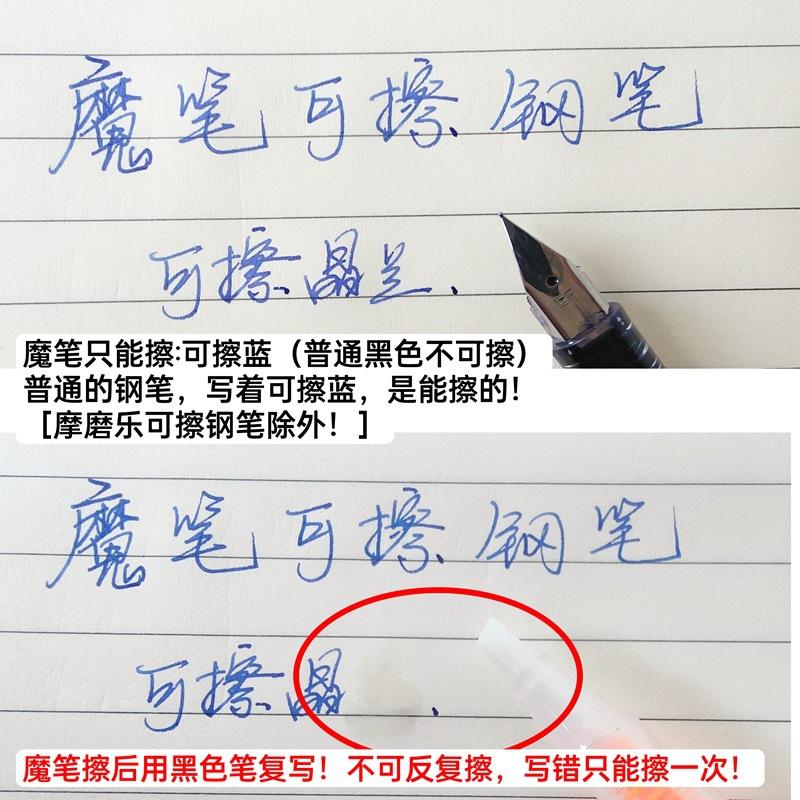 魔笔可擦钢笔
可擦晶蓝.
魔笔只能擦:可擦蓝（普通黑色不可擦）
普通的钢笔，写着可擦蓝，是能擦的！
［摩磨乐可擦钢笔除外！］
魔笔可擦钢笔
可擦晶 .
魔笔擦后用黑色笔复写！不可反复擦，写错只能擦一次！